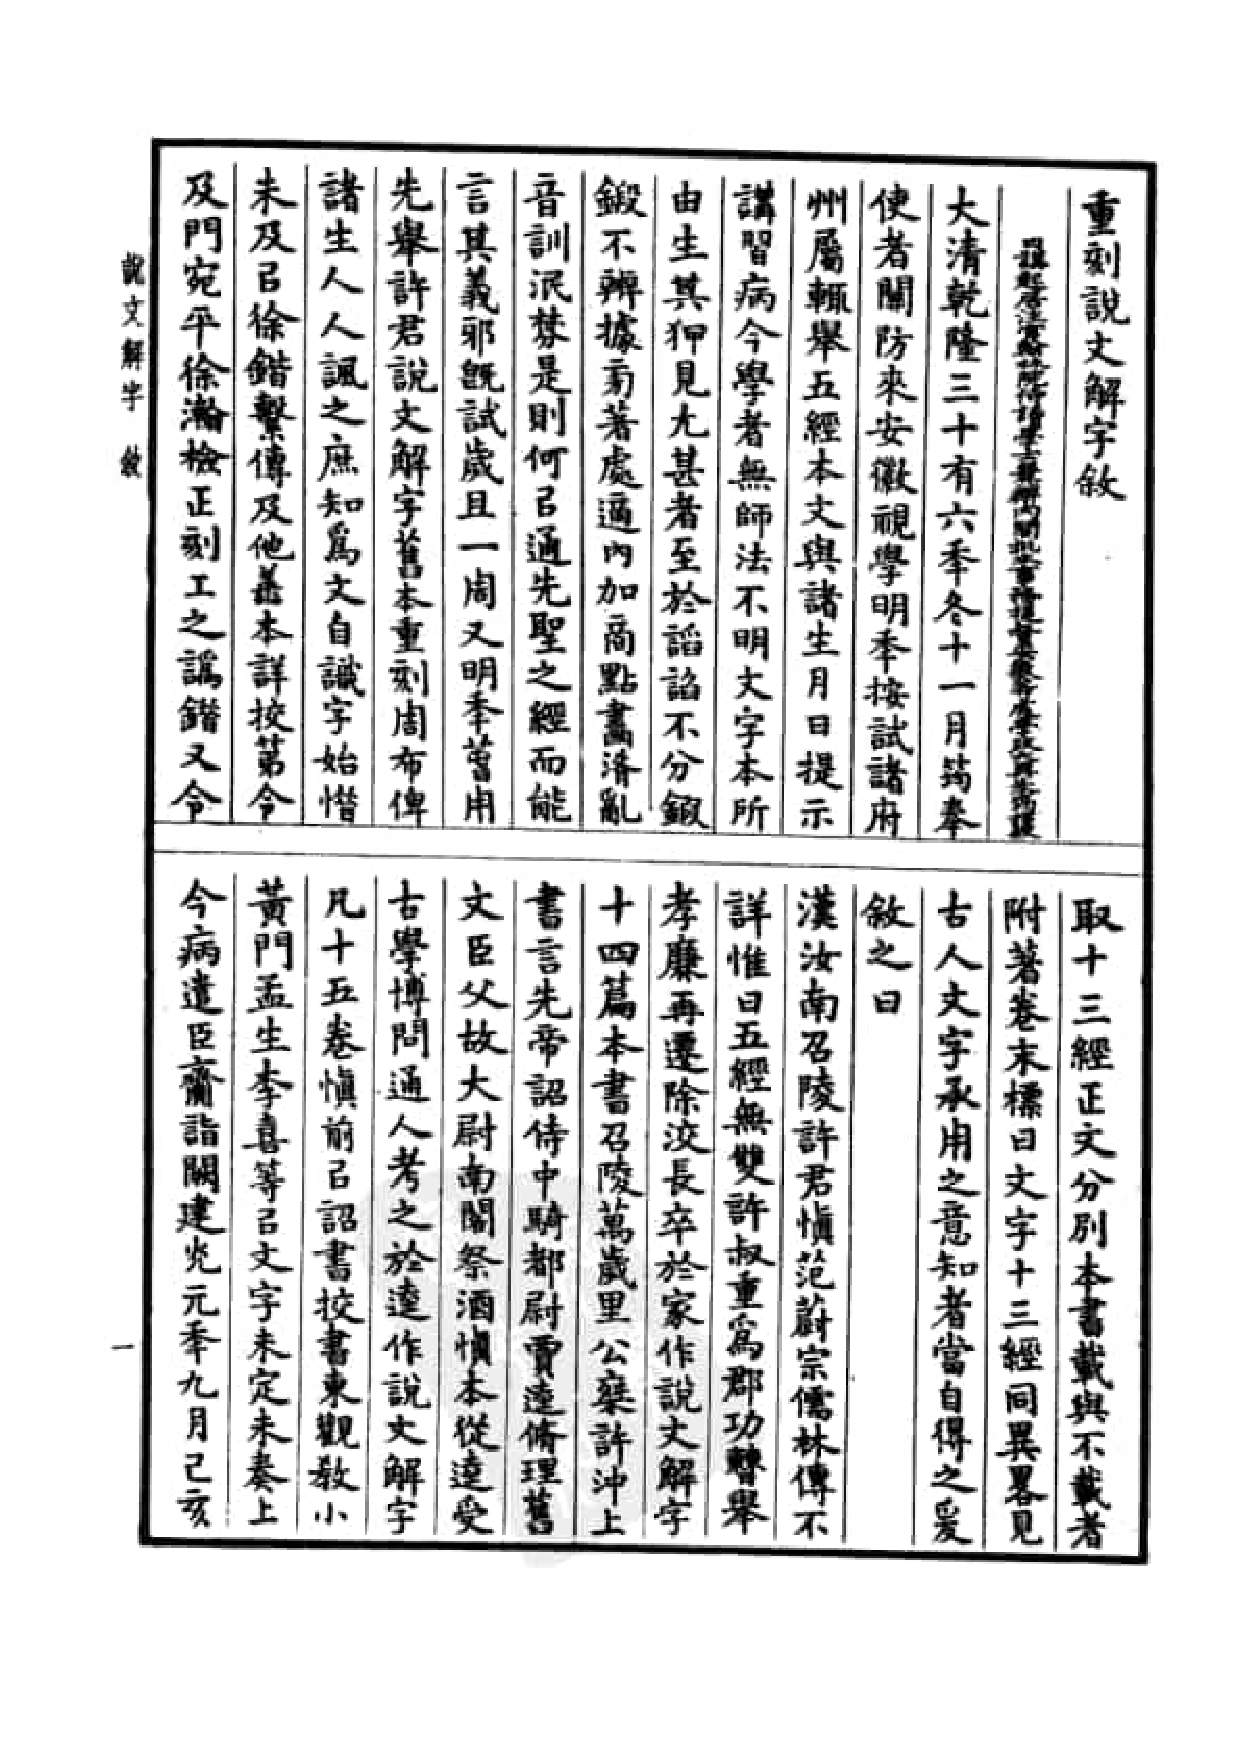 重刻說文解字敘
大清乾隆三十有六秊冬十一月筠奉
使者關防來安徽視學明秊按試諸府
州屬輒舉五經本文與諸生月日提示
講習病今學者無師法不明文字本所
由生其狎見尤甚者至於謟諂不分鍜
鍛不辨據旁著處適內加商點畫淆亂
音訓泯棼是則何㠯通先聖之經而能
言其義邪旣試歲且一周又明秊舊用
先舉許君說文解字舊本重刻周布俾
諸生人人諷之庶知爲文自識字始惜
未及㠯徐鍇繫傳及他善本詳挍苐令
及門宛平徐瀚檢正刻工之譌鍇又令
取十三經正文分別本書載與不載者
附著卷末標曰文字十三經同異畧見
古人文字承用之意知者當自得之爰
敘之曰
漢汝南召陵許君愼范蔚宗儒林傳不
詳惟曰五經無雙許叔重爲郡功曹舉
孝廉再遷除洨長卒於家作說文解字
十四篇本書召陵萬歲里公乘許沖上
書言先帝詔侍中騎都尉賈逵脩理舊
文臣父故大尉南閣祭酒愼本從逵受
古學博問通人考之於逵作說文解字
凡十五卷愼前㠯詔書挍書東觀敎小
黃門孟生李喜等㠯文字未定未奏上
今病遣臣齎詣闕建光元秊九月己亥
說文解字 敘
一